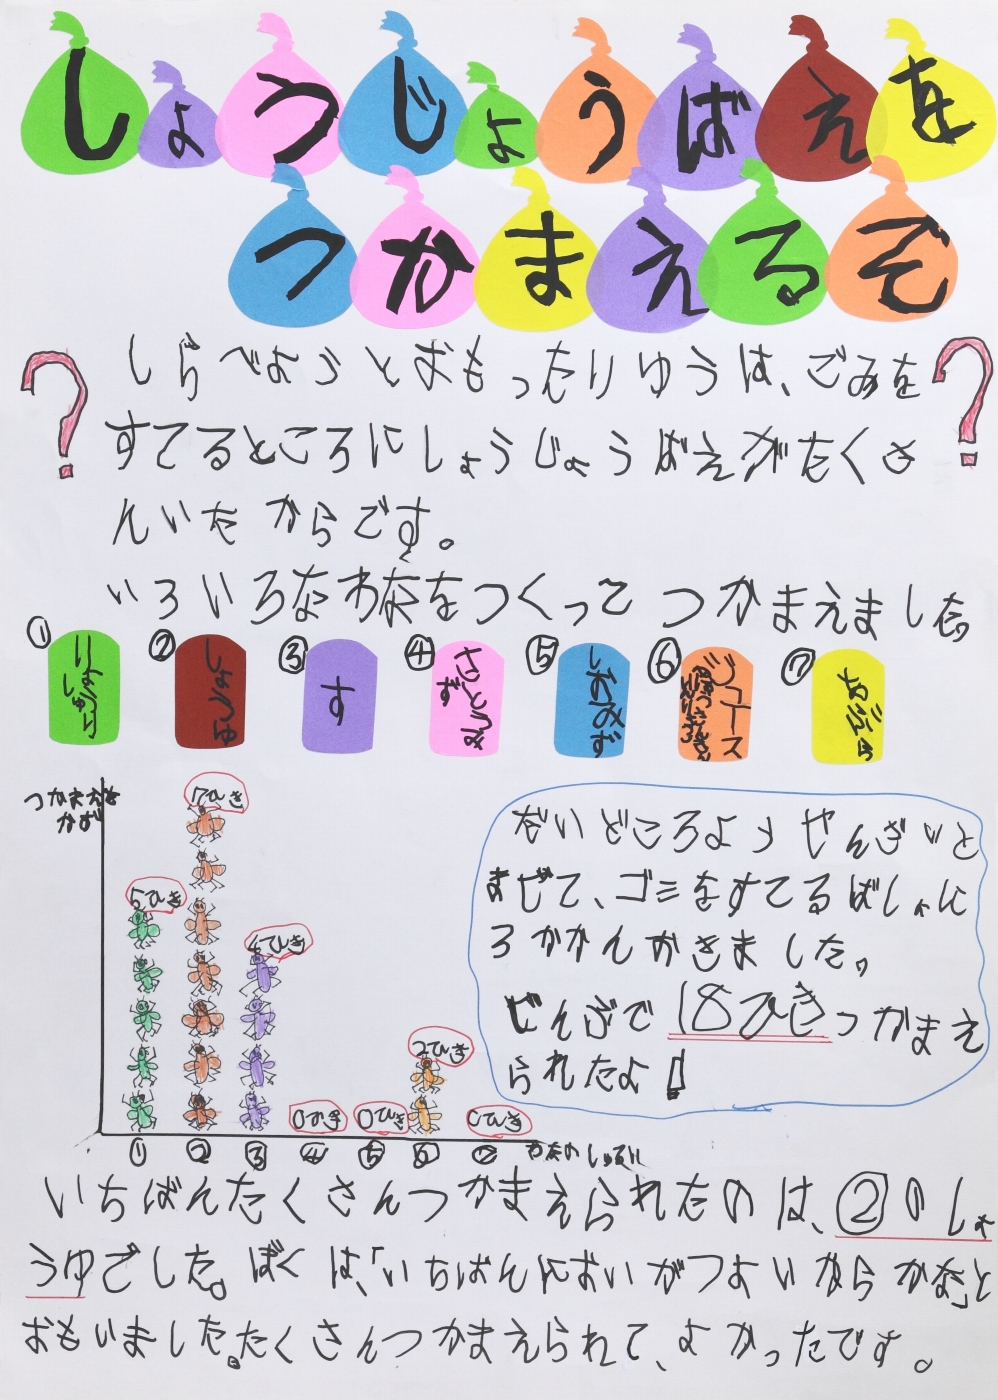 しょうじょうばえを
つかまえるぞ
しらべようとおもったりゆうは、ごみを
すてるところにしょうじょうばえがたくさ
んいたからです。
いろいろなわなをつくってつかまえました。
① ② す ③ さとうみず ④ しおみず ⑤ ⑥ ジュース ⑦
つかまえた
かず
7ひき
5ひき
4ひき
2ひき
0ひき 0ひき 0ひき
① ② ③ ④ ⑤ ⑥ ⑦ わなのしゅるい
だいどころようせんざいと
まぜて、ゴミをすてるばしょに
3かかんおきました。
ぜんぶで18ひきつかまえ
られたよ!
いちばんたくさんつかまえられたのは、②のしょ
うゆでした。ぼくは、「いちばんにおいがつよいからかな」と
おもいました。たくさんつかまえられて、よかったです。